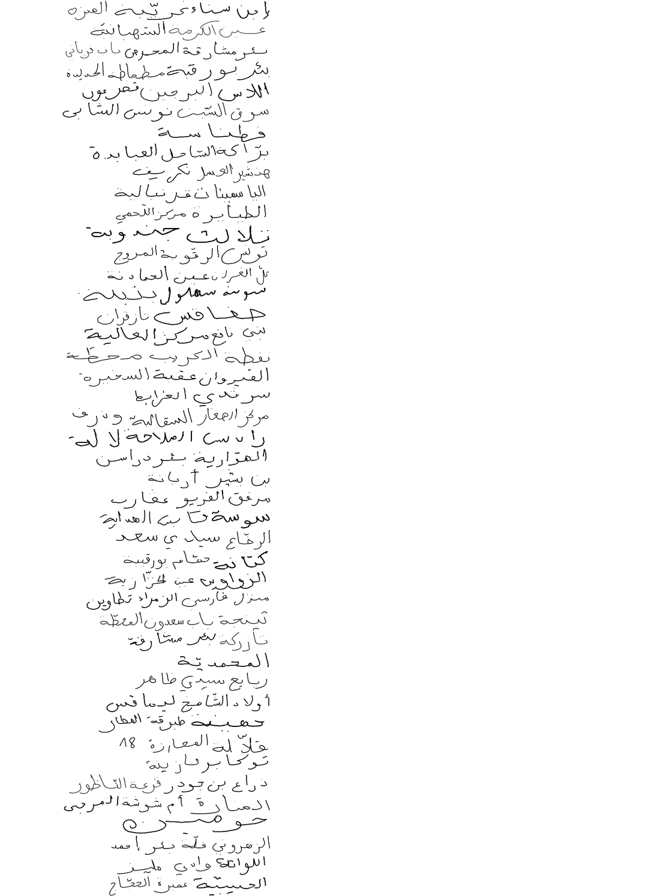 إبن سناء نحريّية العنزة
عين الكرمة الشهبانية
بئر مشارقة المحرص باب دربالي
بئر بورقبة مطماطة الجديدة
اللاس البرجين
سوق السّبت تونس الشابي
فطناسة
برّاكة الساحل العبابدة
هنشير العسل تكريف
الياسمينات قرنبالية
الطبابرة مركز اللّحمي
تلالت جندوبة
تونس الرقوبة المروج
تلّ الغزلان عين الحمادنة
سوسة سهلول بنبلة
صفاقس تازغران
بني نافع مركز العالية
نفطة الكريب محطّة
القيروان عقبة السخيرة
سرندي الغرابة
مركز الصغار السقالبة وذرف
رادس الملاحة لالة
الهزارية بئر دراسن
بن بشير أريانة
مرفق الفريو عقارب
سوسة كتاب الهداية
الرضّاع سيدي سعد
كتانة حشام بورقيبة
الزواوين عين الخزّاربة
منزل فارسي الزهراء تطاوين
تينجة باب سعدون المحطّة
تازركة بئر مشارقة
المحمديّة
ربايع سيدي ظاهر
أولاد الشّامخ ليماقس
حفينة طبرقة العطار
قلاّلة المعازرة 18
توكابر قازينة
ذراع بن جودر قرعة النّاظور
المنارة أم شوشة المرجى
حومين
الزهروني قلّة بئر احمد
اللواتة وادي مليز
الحبيبيّة عميرة الحجّاج